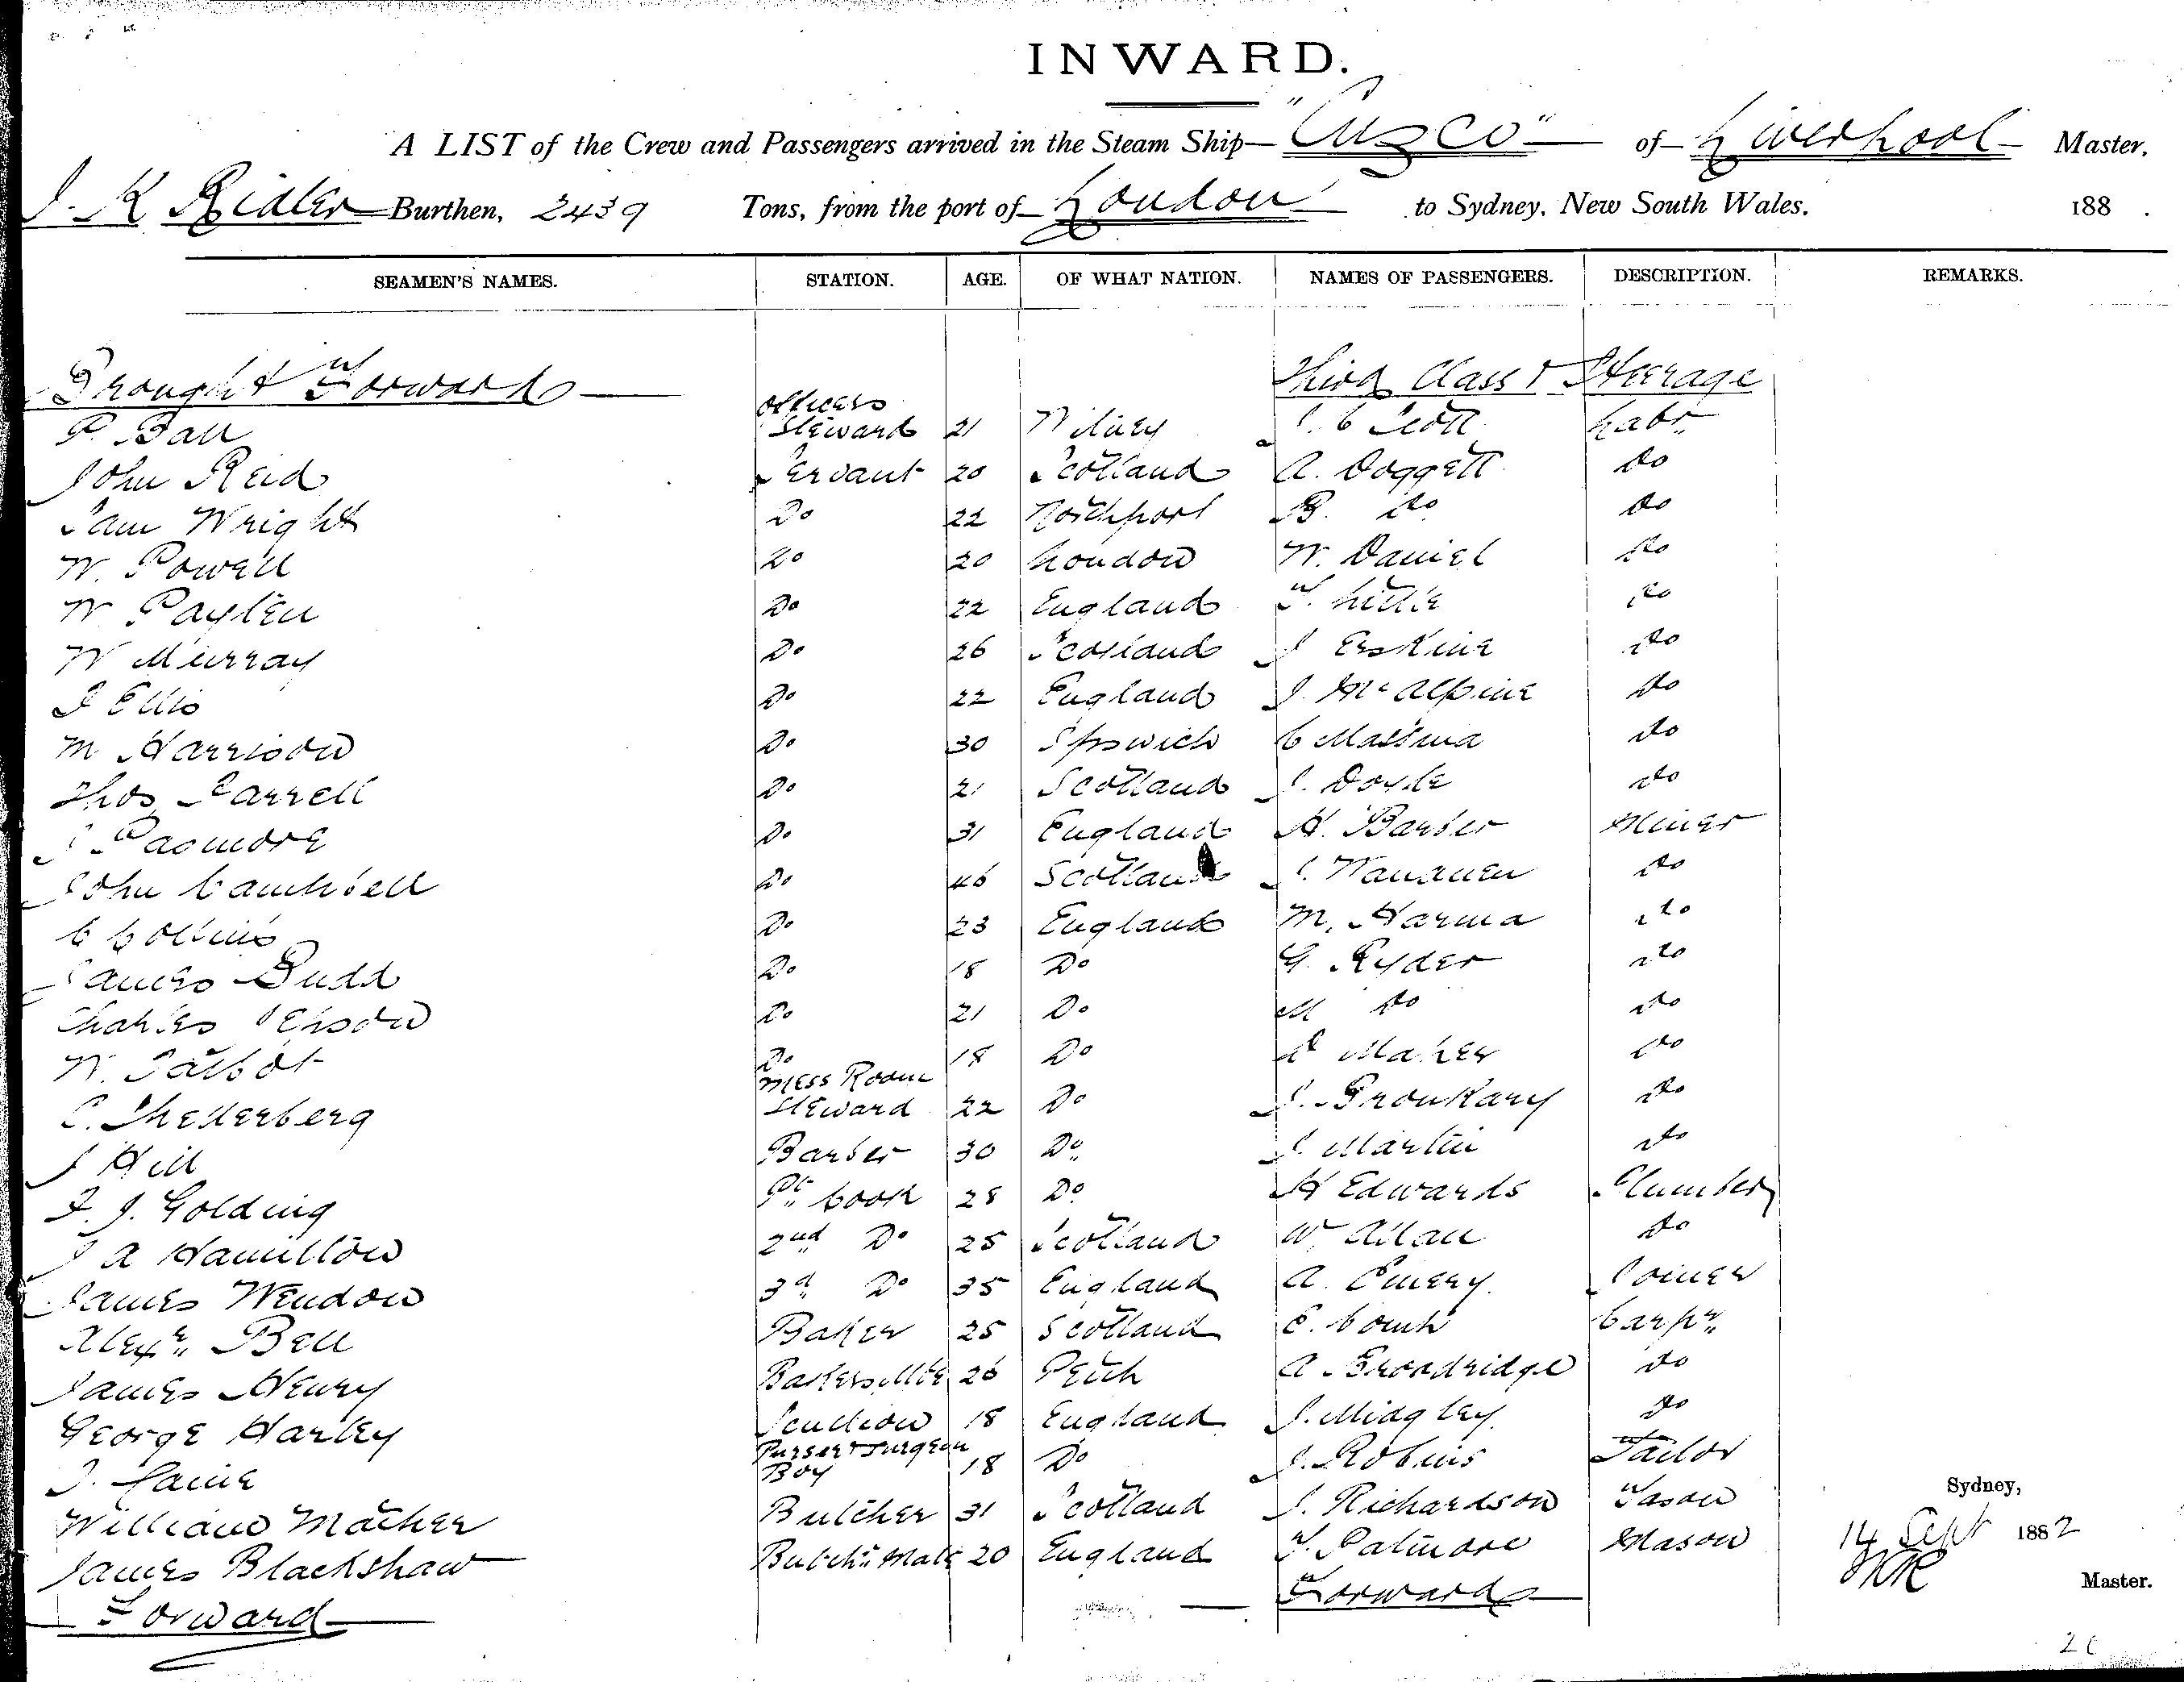 INWARD.
A LIST of the Crew and Passengers arrived in the Steam Ship "Cuzco" of Liverpool Master.
J. K Ridler Burthen, 2439 Tons, from the port of London to Sydney, New South Wales. 188 .
SEAMEN'S NAMES. STATION. AGE. OF WHAT NATION. NAMES OF PASSENGERS. DESCRIPTION. REMARKS.
Brought Forward Third Class & Steerage
P. Ball Officers Steward 21 J. C Scott Labr
John Reid Servant 20 Scotland A. Doggett do
Sam Wright Do 22 Northport B. do do
W. Powell Do 20 London W. Daniel do
W. Do 22 England T. Little do
W Murray Do 26 Scotland J Erskine do
J Ellis Do 22 England J. McAlpine do
M Harrison Do 30 Ipswich C Massina do
Thos Farrell Do 21 Scotland J. Doyle do
J Pasmore Do 31 England H. Barber Miner
John Campbell Do 46 Scotland J. do
C Collins Do 23 England M. Harma do
James Budd Do 18 Do G. Ryder do
Charles Jepson Do 21 Do M do do
W. Talbot Do 18 Do Maher do
C. Shellerberg Mess Room Steward 22 Do J. do
J Hill Barber 30 Do J Martin do
F. J. Golding Pr Cook 28 Do H Edwards Plumber
J A Hamilton 2nd Do 25 Scotland W Allan do
James Wendon 3d Do 35 England A. Emery Joiner
Alexr Bell Baker 25 Scotland E. Carpr
James Henry Bakers Mte 26 Perth A. Broadridge do
George Harley Scullion 18 England J. Midgley do
J. Laine Purser & Surgeon Boy 18 Do J. Robins Tailor
William Mather Butcher 31 Scotland J. Richardson
James Blackshaw Butchr Mate 20 England T. Patmore Mason
Forward Forward
Sydney,
14 Sept 1882
JKR
Master.